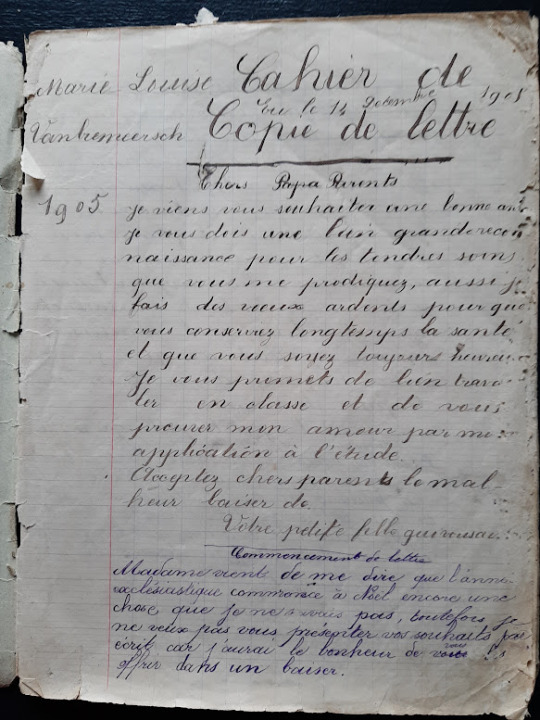 Marie Louise Cahier de
Eu le 14 1905
Vanhemeersch Copie de lettre
Chers Papa Parents
1905 je viens vous souhaiter une bonne an
je vous dois une bien grande recon
naissance pour les tendres soins
que vous me prodiguez, aussi je
fais des vœux ardents pour que
vous conserviez longtemps la santé
et que vous soyez toujours heureu
Je vous promets de bien trava
ler en classe et de vous
procurer mon amour par mon
application à l'étude.
Acceptez chers parents le mal-
heur baiser de
Votre petite fille qui vous
Commencement de lettre
Madame vient de me dire que l'anné
ecclésiastique commence à Noël encore une
chose que je ne savais pas, toutefois je
ne veux pas vous présenter vos souhaits par
écrit car j'aurai le bonheur de vous les
offrir dans un baiser.